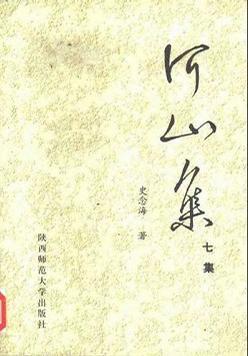 河山集
七集
史念海 著
陕西师范大学出版社